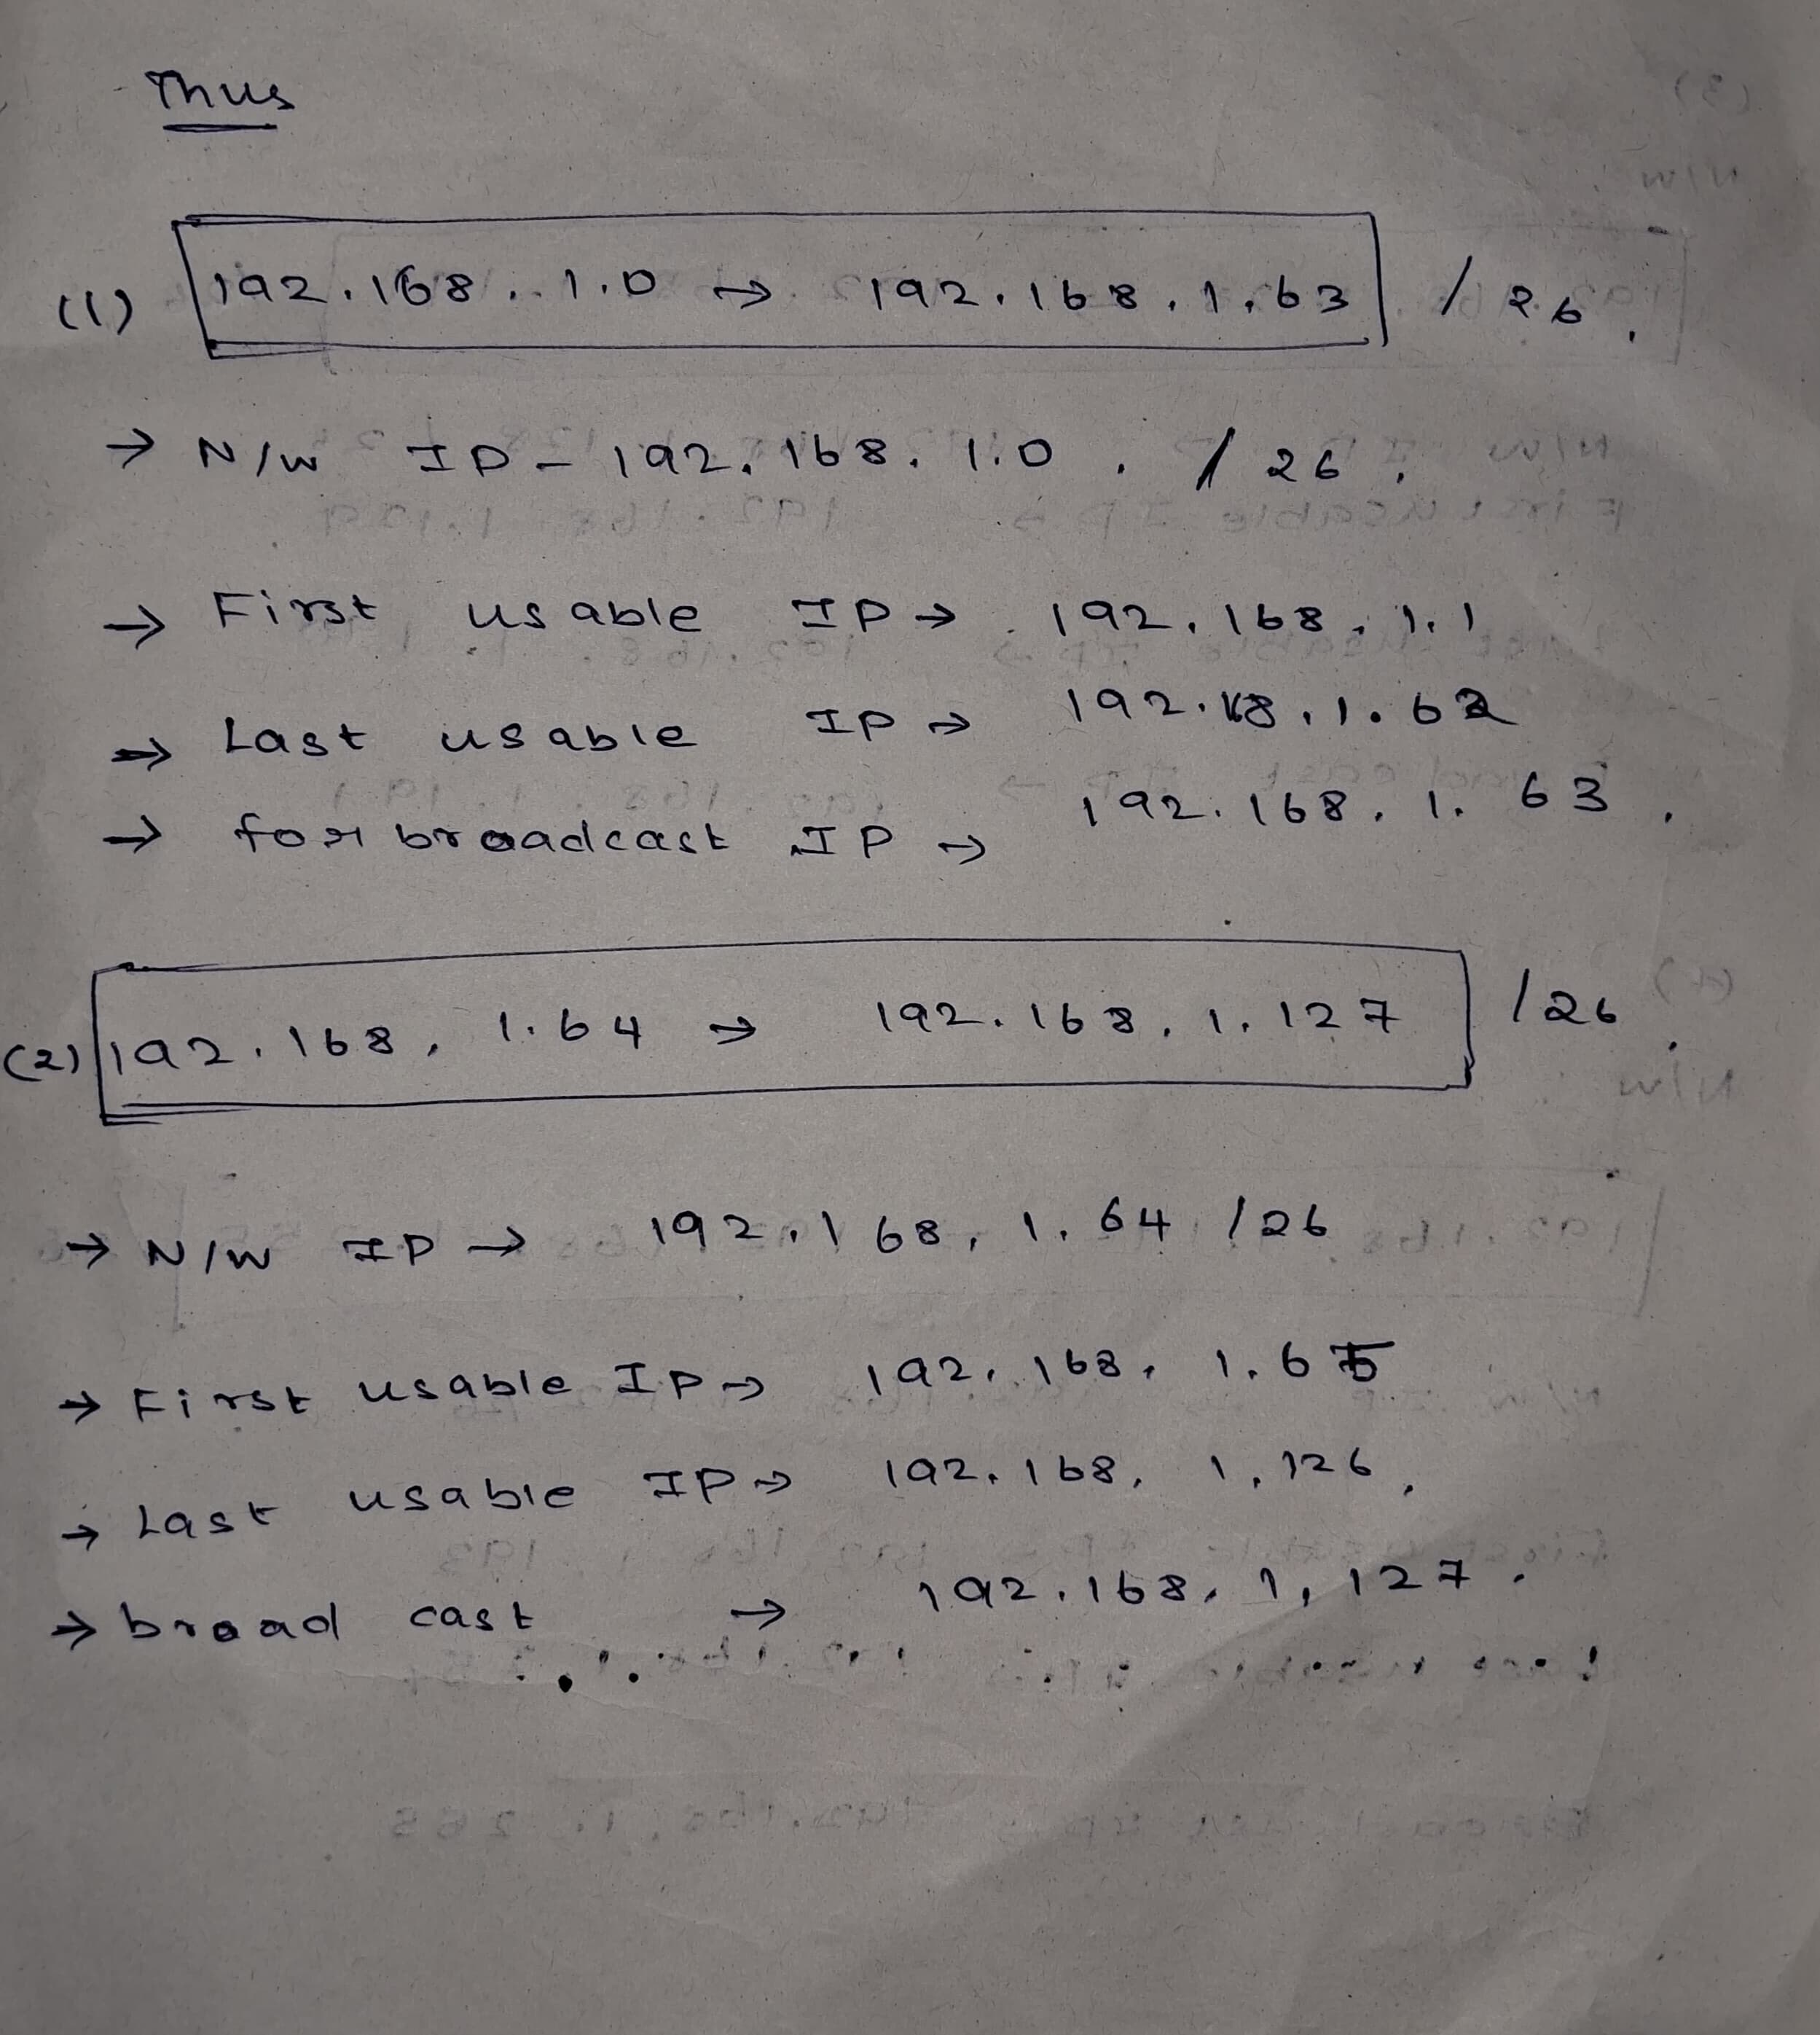 Thus
(1) 192.168.1.0 → 192.168.1.63 /26.
→ N/W IP - 192.168.1.0. /26.
→ First usable IP → 192.168.1.1
→ Last usable IP → 192.168.1.62
→ for broadcast IP → 192.168.1.63.
(2) 192.168.1.64 → 192.168.1.127 /26.
→ N/W IP → 192.168.1.64 /26
→ First usable IP → 192.168.1.65
→ Last usable IP → 192.168.1.126.
→ broad cast → 192.168.1.127.